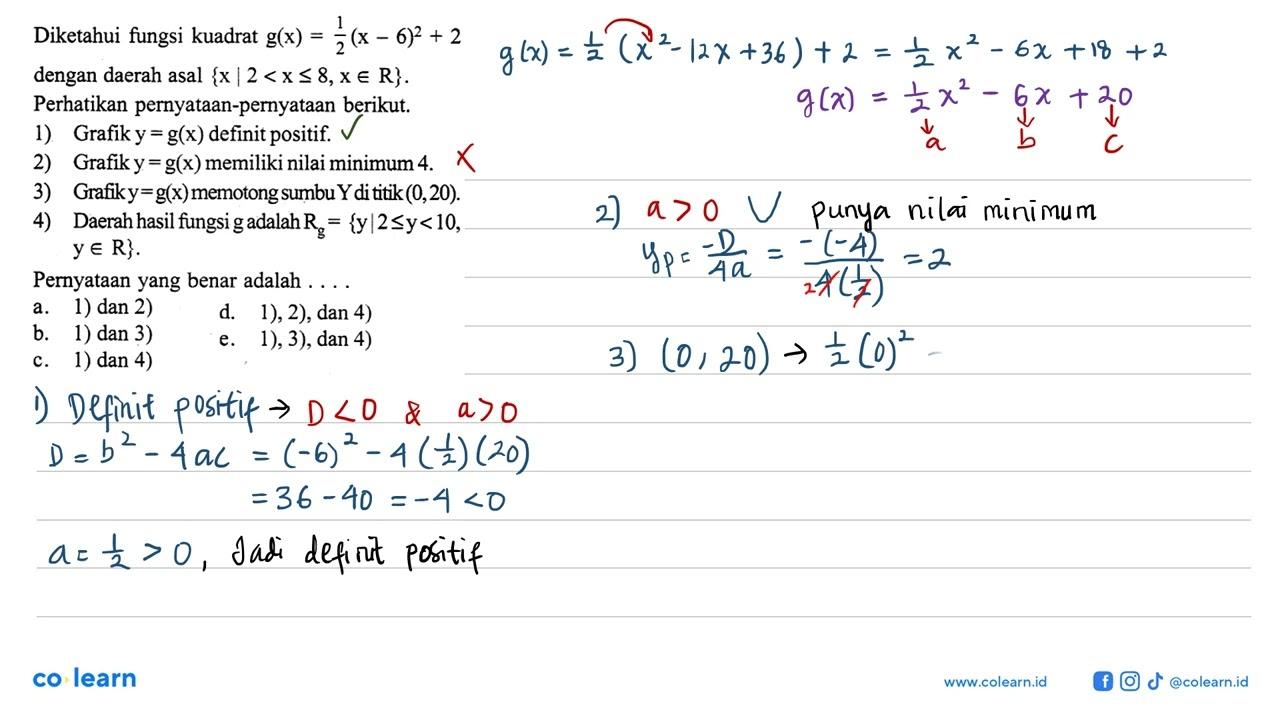 Diketahui fungsi kuadrat g(x) = 1/2 (x − 6)² + 2
dengan daerah asal {x | 2 < x ≤ 8, x ∈ R}.
Perhatikan pernyataan-pernyataan berikut.
1) Grafik y = g(x) definit positif. ✓
2) Grafik y = g(x) memiliki nilai minimum 4. ✗
3) Grafik y = g(x) memotong sumbu Y di titik (0, 20).
4) Daerah hasil fungsi g adalah R_g = {y | 2 ≤ y < 10,
y ∈ R}.
Pernyataan yang benar adalah . . . .
a. 1) dan 2)
b. 1) dan 3)
c. 1) dan 4)
d. 1), 2), dan 4)
e. 1), 3), dan 4)
1) Definit positif → D < 0 & a > 0
D = b² − 4ac = (−6)² − 4(1/2)(20)
= 36 − 40 = −4 < 0
a = 1/2 > 0, Jadi definit positif
g(x) = 1/2 (x² − 12x + 36) + 2 = 1/2 x² − 6x + 18 + 2
g(x) = 1/2 x² − 6x + 20
a b c
2) a > 0 ∪ punya nilai minimum
yp = −D/4a = −(−4)/4(1/2) = 2
2
3) (0, 20) → 1/2 (0)² −
co learn
www.colearn.id
@colearn.id